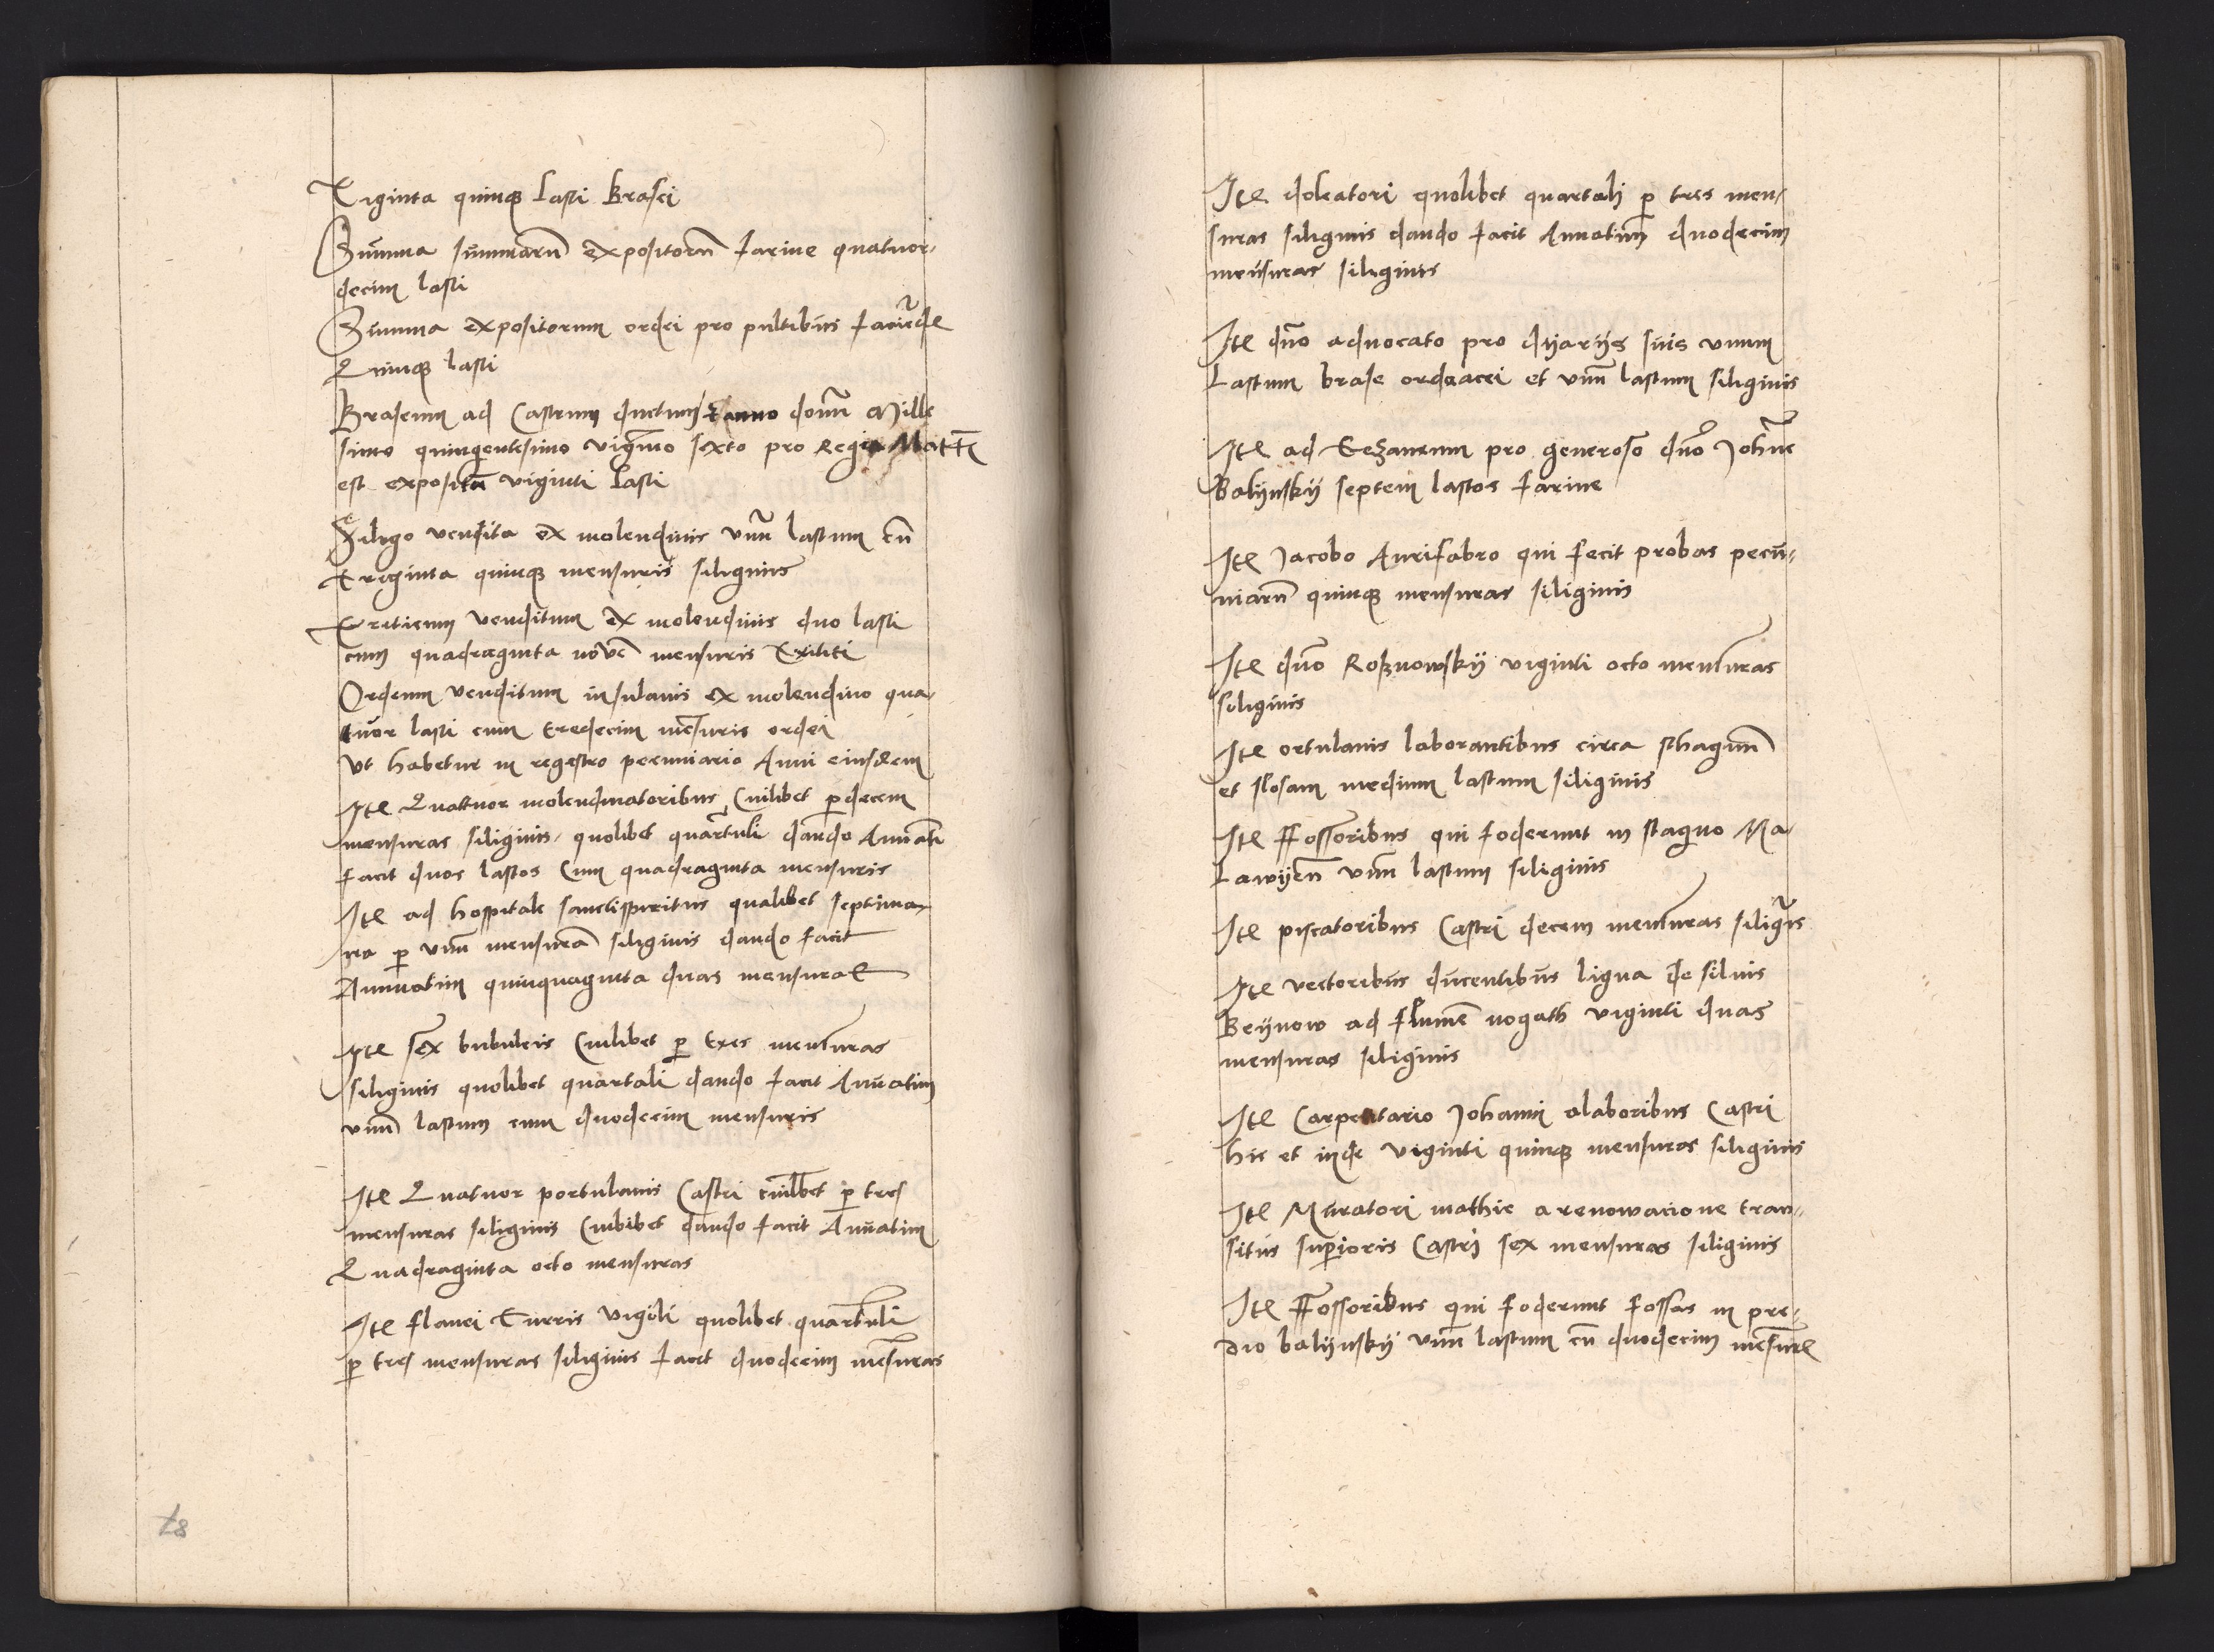 Triginta quinque Lasti Brasei
Summa summarũ expositorũ farine quatuor-
decim lasti
Summa expositorum ordei pro pultibus faciẽde
Quinque lasti
Braseum ad Castrum ductum anno domĩ Mille
simo quingentesimo vigmo sexto pro Regia Mattẽ
est expositũ viginti Lasti
Siligo vendita ex molendinis vnũ lastum cũ
triginta quinque mensuris siliginis
Triticum venditum ex molendinis duo lasti
cum quadraginta novẽ mensuris Tritici
Ordeum venditum insulanis ex molendino qua-
tuor lasti cum tredecim mẽsuris ordei
Vt habetur in regestro pecuniario Anni eiusdem
Itẽ Quattuor molendinatoribus Cuilibet p decem
mensuras siliginis quolibet quartuli dando Annuati
facit duos lastos Cum quadraginta mensuris
Itẽ ad hospitale sanctispiritus qualibet septima-
na p vnũ mensurã siliginis dando facit
Annuatim quinquaginta duas mensuras
Itẽ sex bubulcis Cuilibet p tres mensuras
siliginis quolibet quartali dando facit Anuatim
vnũ lastum cum duodecim mensuris
Itẽ Quatuor portulanis Castri cuilibet p tres
mensuras siliginis Cuibibet dando facit Anuatim
Quadraginta octo mensuras
Itẽ flanci Turris vigili quolibet quartuli
p tres mensuras siliginis facit duodecim mẽsuras
78
Itẽ doleatori quolibet quartalj p tres men-
suras siliginis dando facit Annatim duodecim
mensuras siliginis
Itẽ dño aduocato pro dyarijs suis vnum
Lastum brase ordeacei et vnũ lastum siliginis
Itẽ ad Tczauenum pro generoso dño Johãne
Balijnskÿ septem lastos farine
Itẽ Jacobo Aurifabro qui fecit probas pecu-
niarũ quinque mensuras siliginis
Itẽ dño Roßnowskÿ viginti octo mensuras
siliginis
Itẽ ortulanis laborantibus circa sthagnũ
et slosam medium lastum siliginis
Itẽ ffossoribus qui foderunt in stagno Ma-
Lawijen vnũ lastum siliginis
Itẽ piscatoribus Castri decem mensuras siligis
Itẽ vectoribus ducentibus ligna de siluis
Beijnow ad flumẽ nogath viginti duas
mensuras siliginis
Itẽ Carpentario Johanni alaboribus Castri
hic et inde viginti quinque mensuras siliginis
Itẽ Muratori mathie a renowacione tran-
situs supioris Castrj sex mensuras siliginis
Itẽ ffossoribus qui foderunt fossas in pre-
dio balijnskÿ vnũ lastum cũ duodecim mẽsur